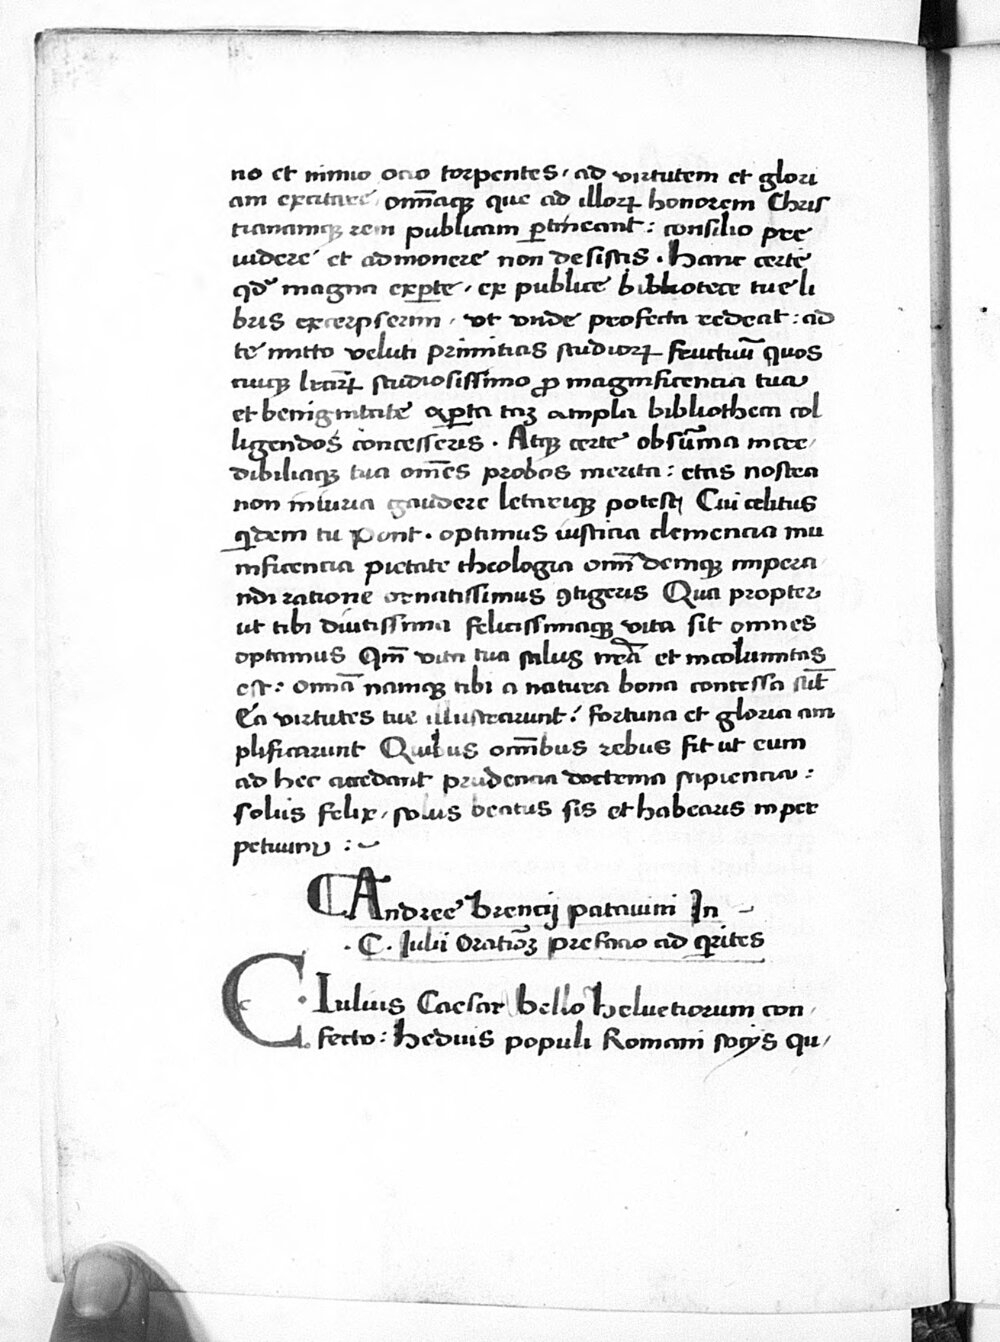 no et nimio ocio torpentes, ad virtutem et glori
am excitare, om̄iaqꝫ que ad illoꝝ honorem Chris
tianamqꝫ rem publicam ꝑtineant: consilio pre
uidere et admonere non desistis. Hanc certe
qd̄ magna ex ꝑte, ex publice bibliotece tue li
bris excerpserim, vt vnde profecta redeat: ad
te mitto veluti primitias studioꝝ fructuū quos
cuiqꝫ lr̄aꝝ studiosissimo ꝓ magnificentia tua
et benignitate aꝑta taꝫ ampla bibliotheca col
ligendos concesseris. Atqꝫ certe ob sūma incre,
dibiliaqꝫ tua om̄es probos merita: etas nostra
non iniuria gaudere letariqꝫ potest Cui celitus
qͥdem tu Pont. optimus iusticia clemencia mu
nificencia pietate theologia om̄i demqꝫ impera
ndi ratione ornatissimus ꝯtigeris Qua propter
ut tibi diutissima felicissimaqꝫ vita sit omnes
optamus Qm̄ vita tua salus nr̄a et incolumitas
est: omīa namqꝫ tibi a natura bona concessa sūt
Ea virtutes tue illustrarunt: fortuna et gloria am
plificarunt Quibus om̄ibus rebus fit ut cum
ad hec accedant prudencia doctrina sapiencia:
solus felix, solus beatus sis et habearis in per
petuum :~
Andree Brencij patauini In
.C. Iulii Oratiōꝫ prefacio ad qͥrites
C. Iulius Caesar bello Heluetiorum con,
fecto: Heduis populi Romani socijs qu,